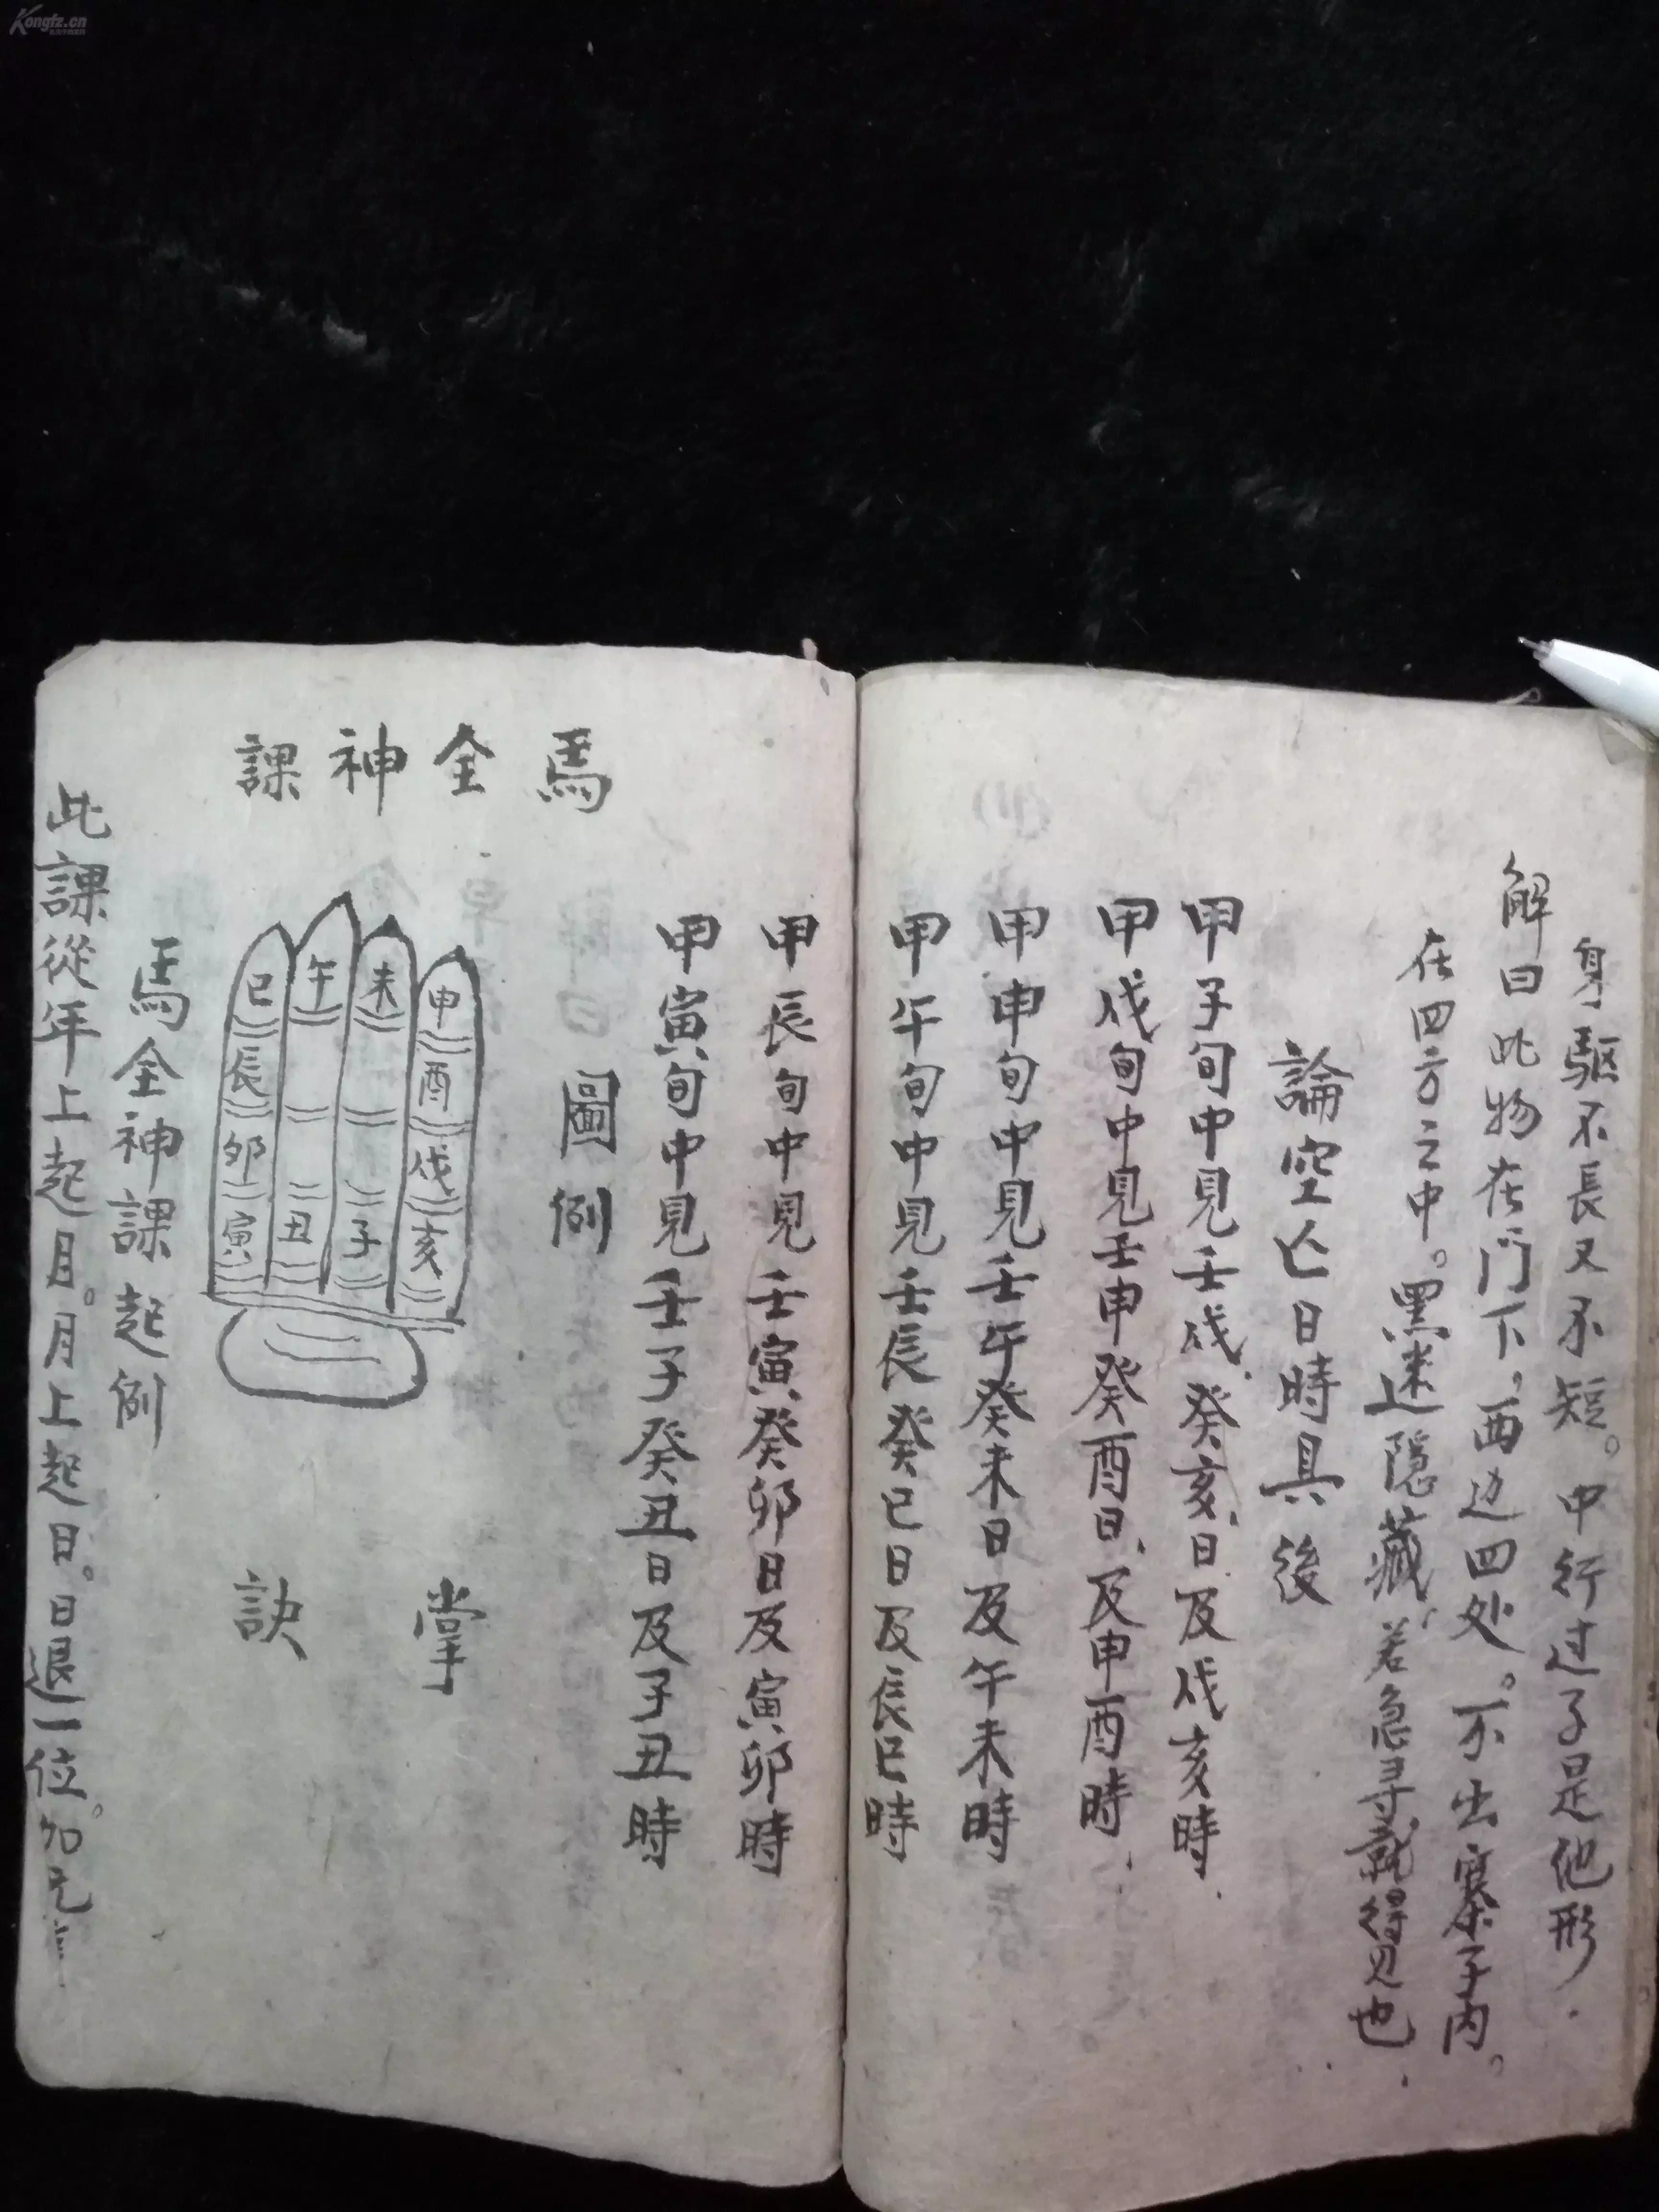 Kongfz.cn
身驱不長又不短。中行过子是他形
解曰此物在门下，西边四处。不出寨子内。
在四方之中。黑迷隐藏，若急寻就得见也
論空亡日時具後
甲子旬中見壬戌、癸亥、日及戌亥時
甲戌旬中見壬申癸酉日、及申酉時
甲申旬中見壬午癸未日及午未時
甲午旬中見壬辰癸巳日及辰巳時
甲辰旬中見壬寅癸卯日及寅卯時
甲寅旬中見壬子癸丑日及子丑時
圖例
馬全神課
申酉戌亥
未子
午丑
巳辰卯寅
掌訣
馬全神課起例
此課從年上起月。月上起日。日退一位。